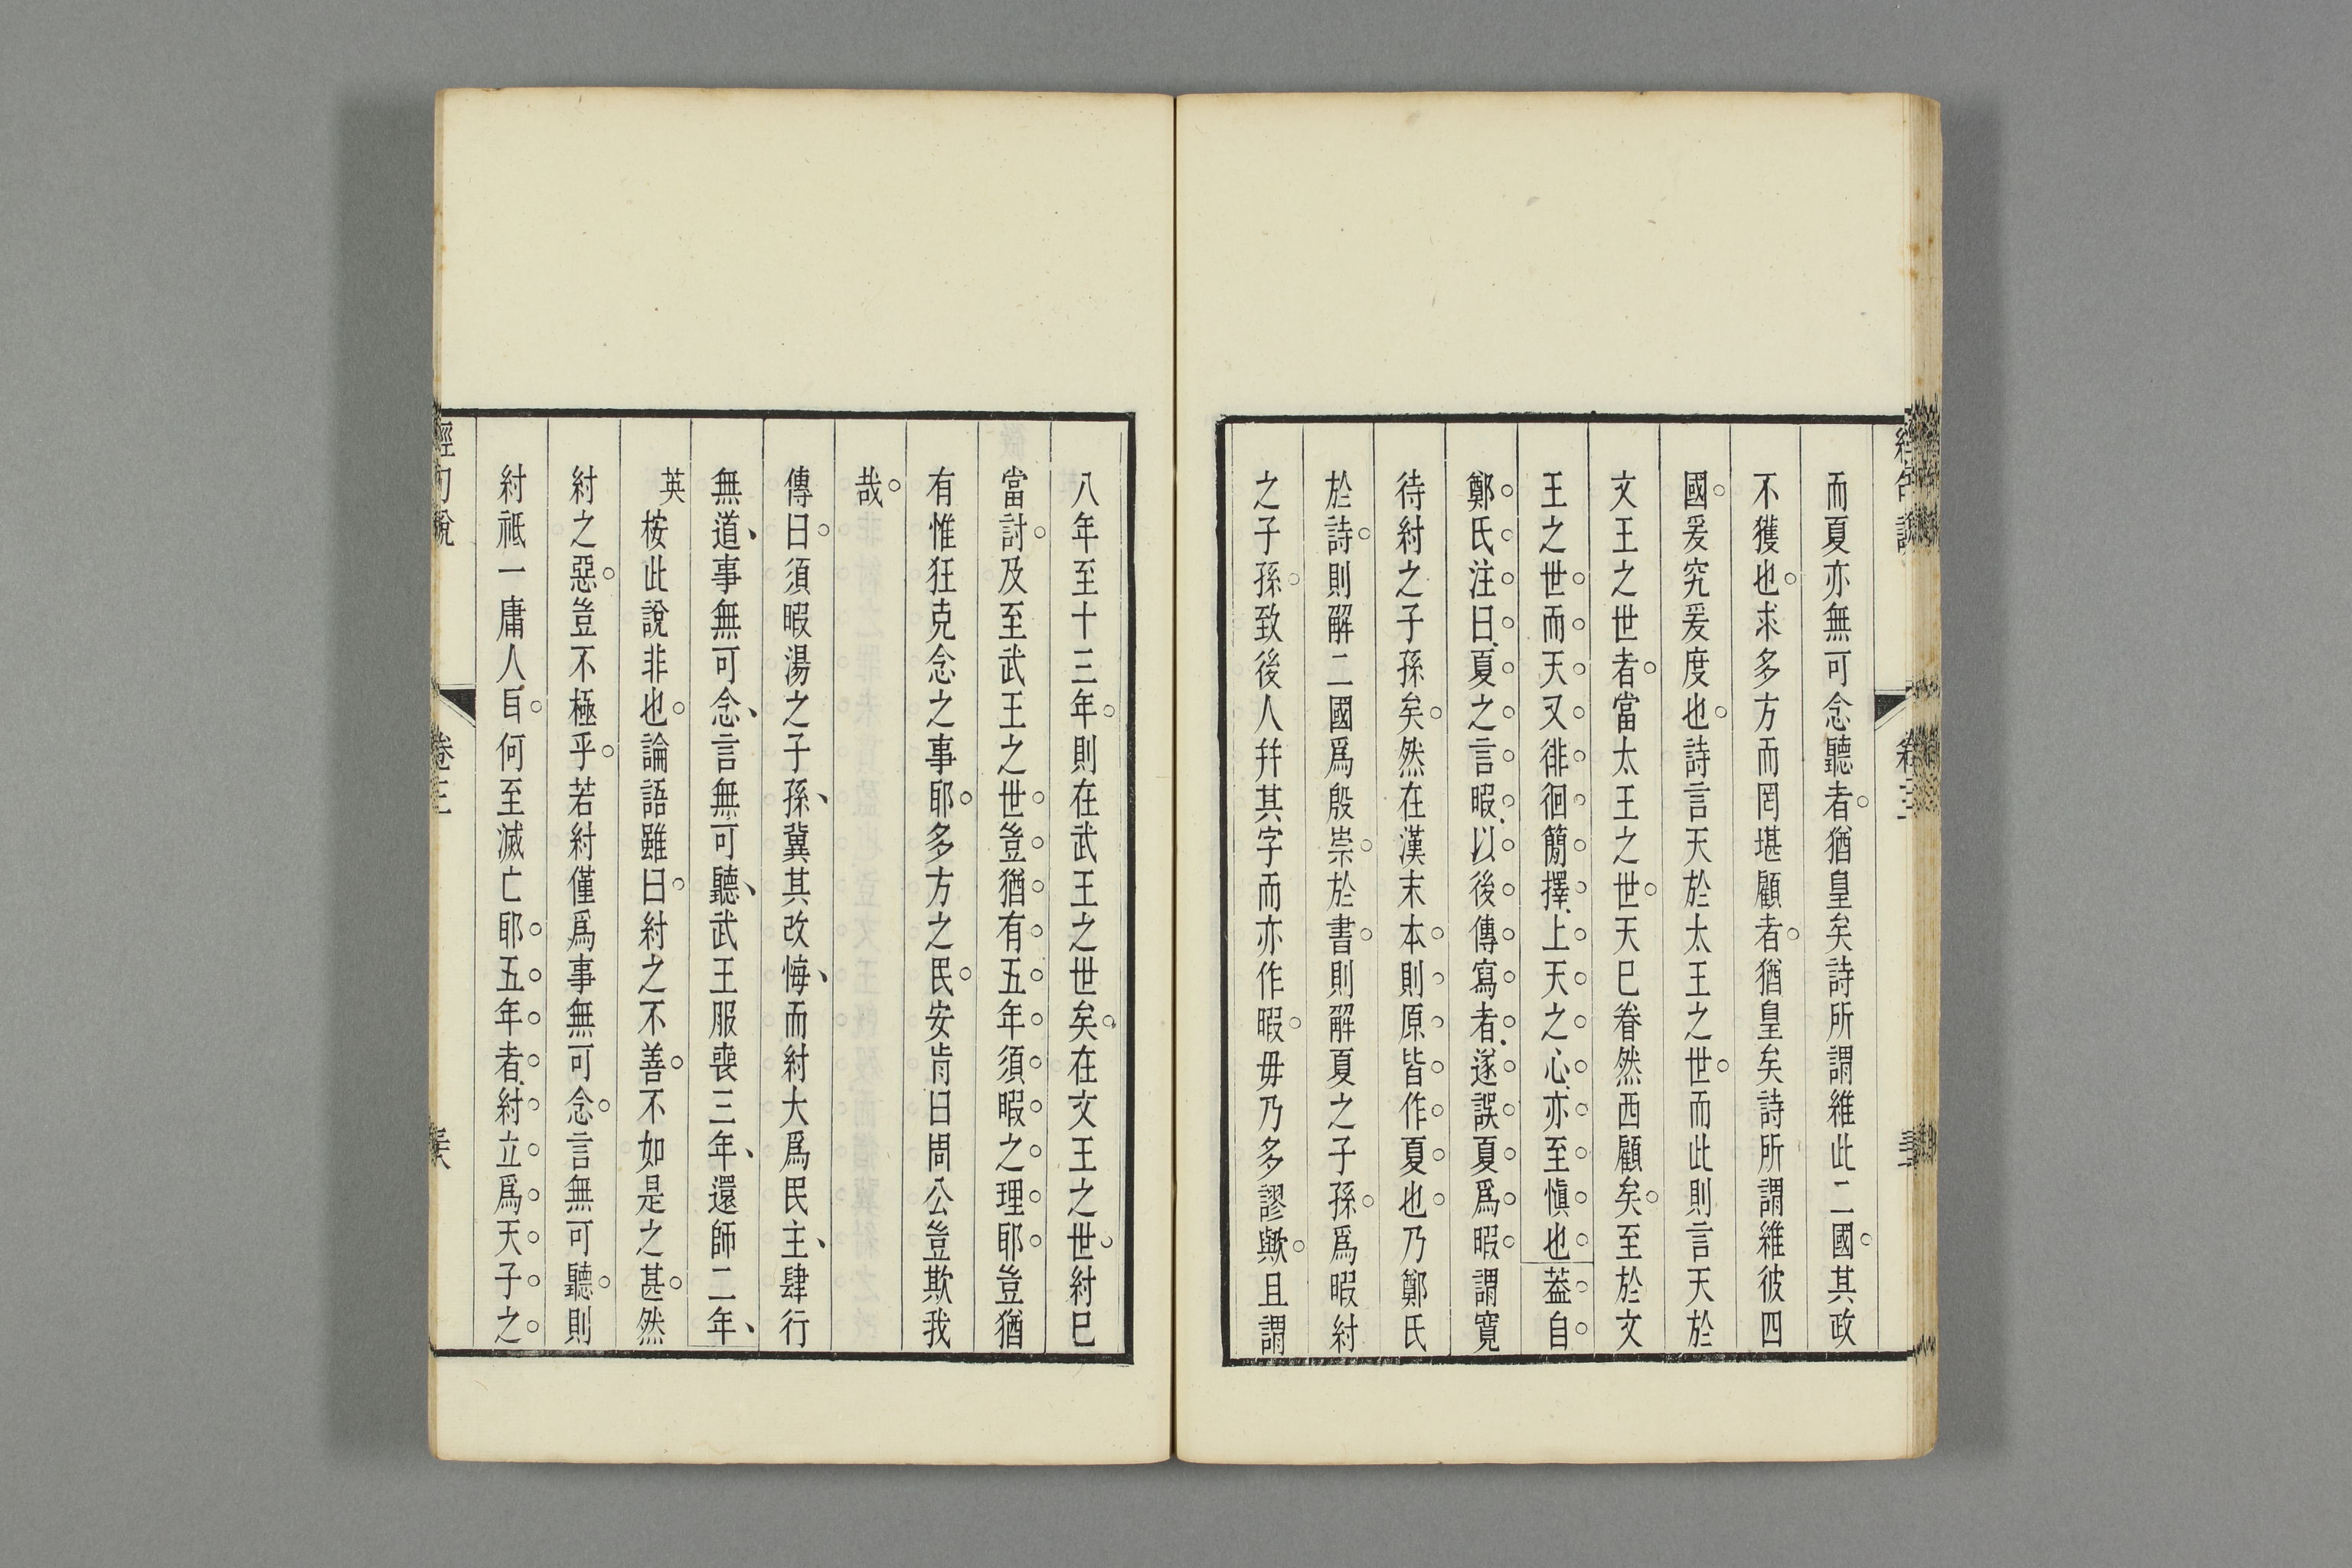 而夏亦無可念聽者猶皇矣詩所謂維此二國其政
不獲也求多方而罔堪顧者猶皇矣詩所謂維彼四
國爰究爰度也詩言天於太王之世而此則言天於
文王之世者當太王之世天巳眷然西顧矣至於文
王之世而天又徘徊簡擇上天之心亦至愼也葢自
鄭氏注曰夏之言暇以後傳寫者遂誤夏爲暇謂寬
待紂之子孫矣然在漢末本則原皆作夏也乃鄭氏
於詩則解二國爲殷崇於書則解夏之子孫爲暇紂
之子孫致後人幷其字而亦作暇毋乃多謬歟且謂
八年至十三年則在武王之世矣在文王之世紂巳
當討及至武王之世豈猶有五年須暇之理耶豈猶
有惟狂克念之事耶多方之民安肯曰周公豈欺我
哉
傳曰須暇湯之子孫冀其改悔而紂大爲民主肆行
無道事無可念言無可聽武王服喪三年還師二年
英桉此說非也論語雖曰紂之不善不如是之甚然
紂之惡豈不極乎若紂僅爲事無可念言無可聽則
紂祇一庸人㠯何至滅亡耶五年者紂立爲天子之
經句說
卷三